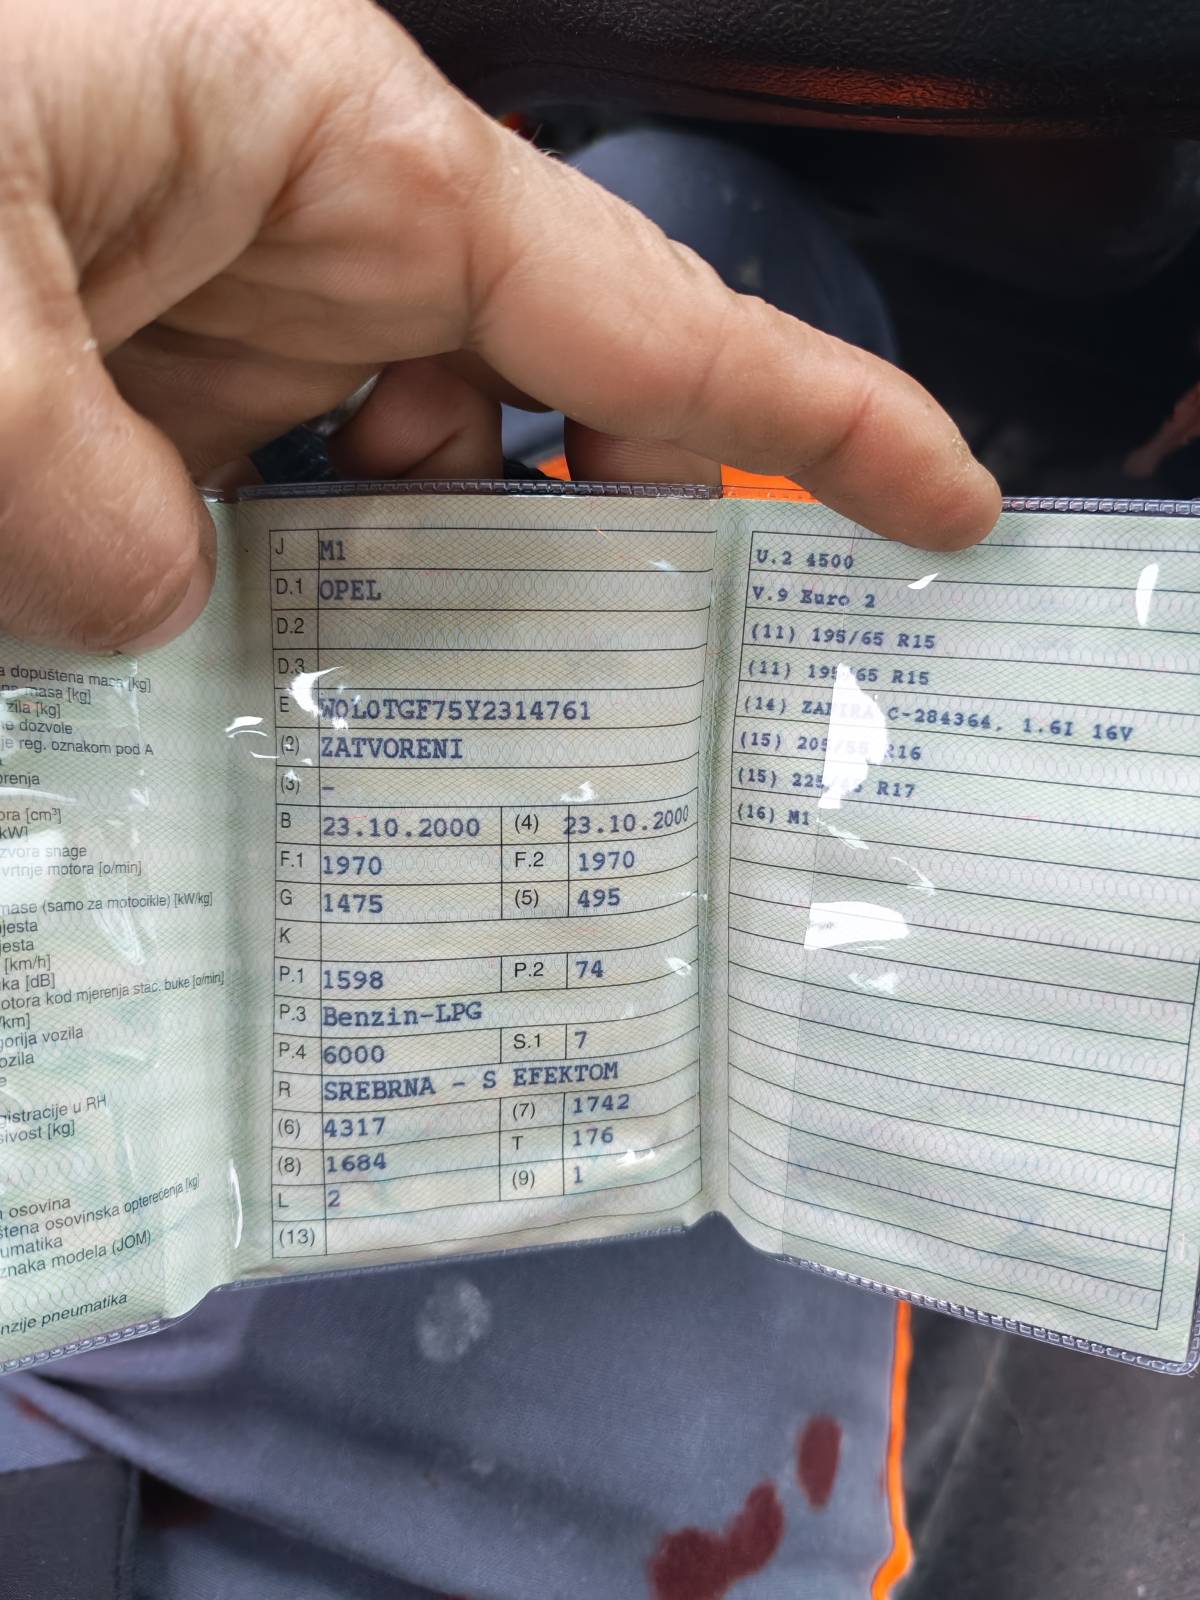 a dopuštena masa [kg]
masa [kg]
zila [kg]
ne dozvole
je reg. oznakom pod A
orenja
ora [cm³]
kW]
zvora snage
vrtnje motora [o/min]
mase (samo za motocikle) [kW/kg]
jesta
jesta
[km/h]
ka [dB]
otora kod mjerenja stac. buke [o/min]
/km]
gorija vozila
ozila
e
gistracije u RH
sivost [kg]
osovina
štena osovinska opterećenja [kg]
umatika
znaka modela (JOM)
nzije pneumatika
J M1
D.1 OPEL
D.2
D.3
E W0L0TGF75Y2314761
(2) ZATVORENI
(3) –
B 23.10.2000 (4) 23.10.2000
F.1 1970 F.2 1970
G 1475 (5) 495
K
P.1 1598 P.2 74
P.3 Benzin-LPG
P.4 6000 S.1 7
R SREBRNA - S EFEKTOM
(6) 4317 (7) 1742
(8) 1684 T 176
L 2 (9) 1
(13)
U.2 4500
V.9 Euro 2
(11) 195/65 R15
(11) 195/65 R15
(14) ZAFIRA C-284364, 1.6I 16V
(15) 205/55 R16
(15) R17
(16) M1